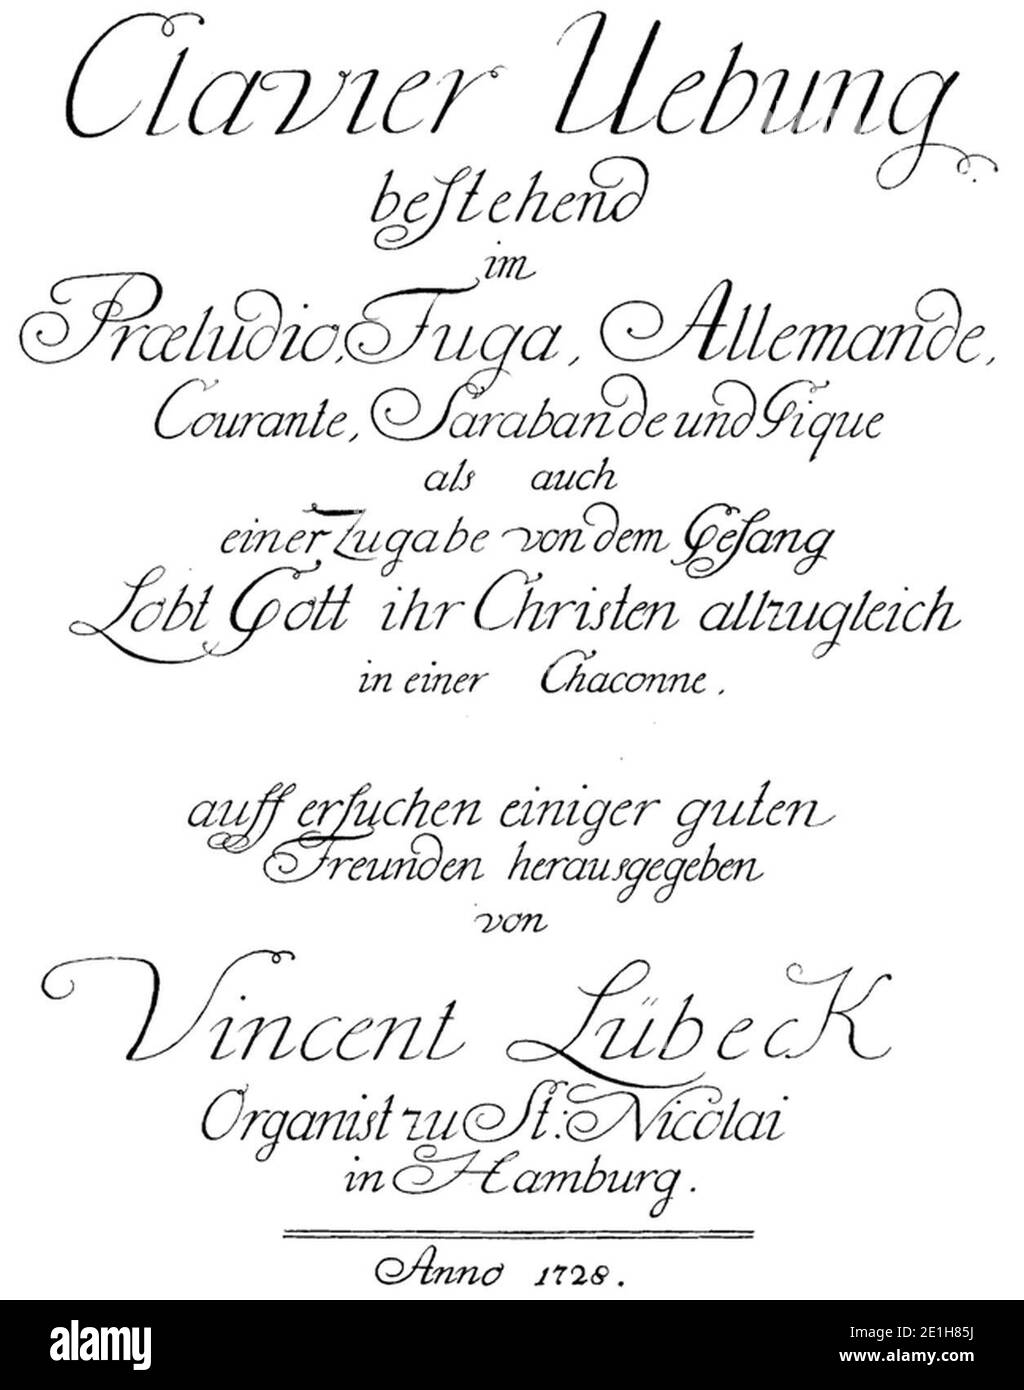 Clavier Uebung.
bestehend
im
Præludio, Fuga, Allemande,
Courante, Sarabande und Gique
als auch
einer Zugabe von dem Gesang
Lobt Gott ihr Christen allzugleich
in einer Chaconne.
auff ersuchen einiger guten
Freunden herausgegeben
von
Vincent Lübeck
Organist zu St: Nicolai
in Hamburg.
Anno 1728.
alamy
Image ID: 2E1H85J
www.alamy.com